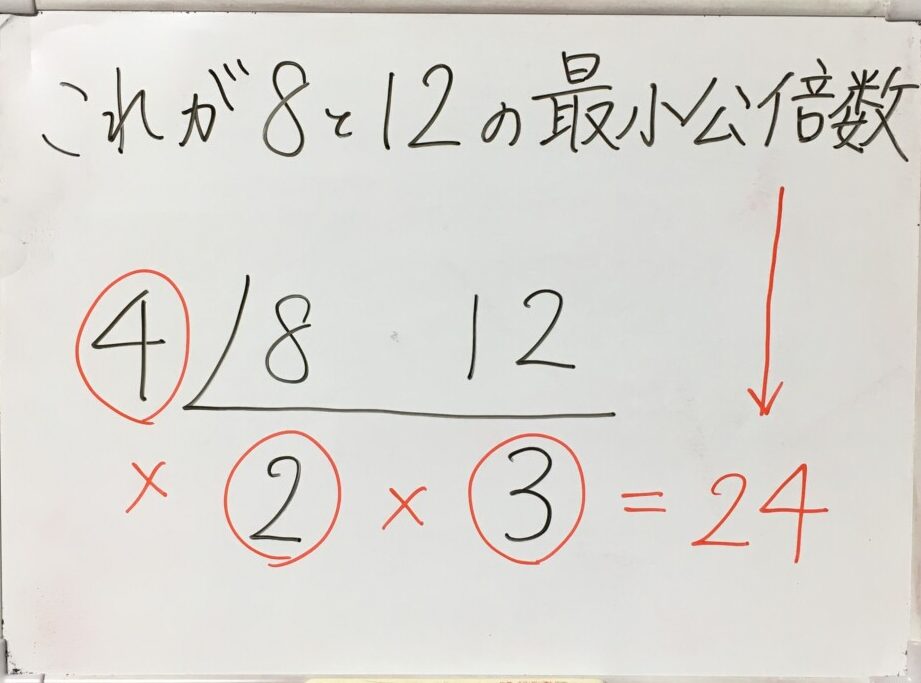 これが8と12の最小公倍数
4 8 12
× 2 × 3 = 24